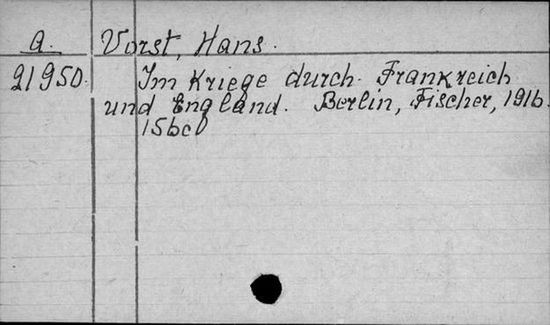 a. Vorst, Hans.
21950. Im Kriege durch Frankreich
und England. Berlin, Fischer, 1916.